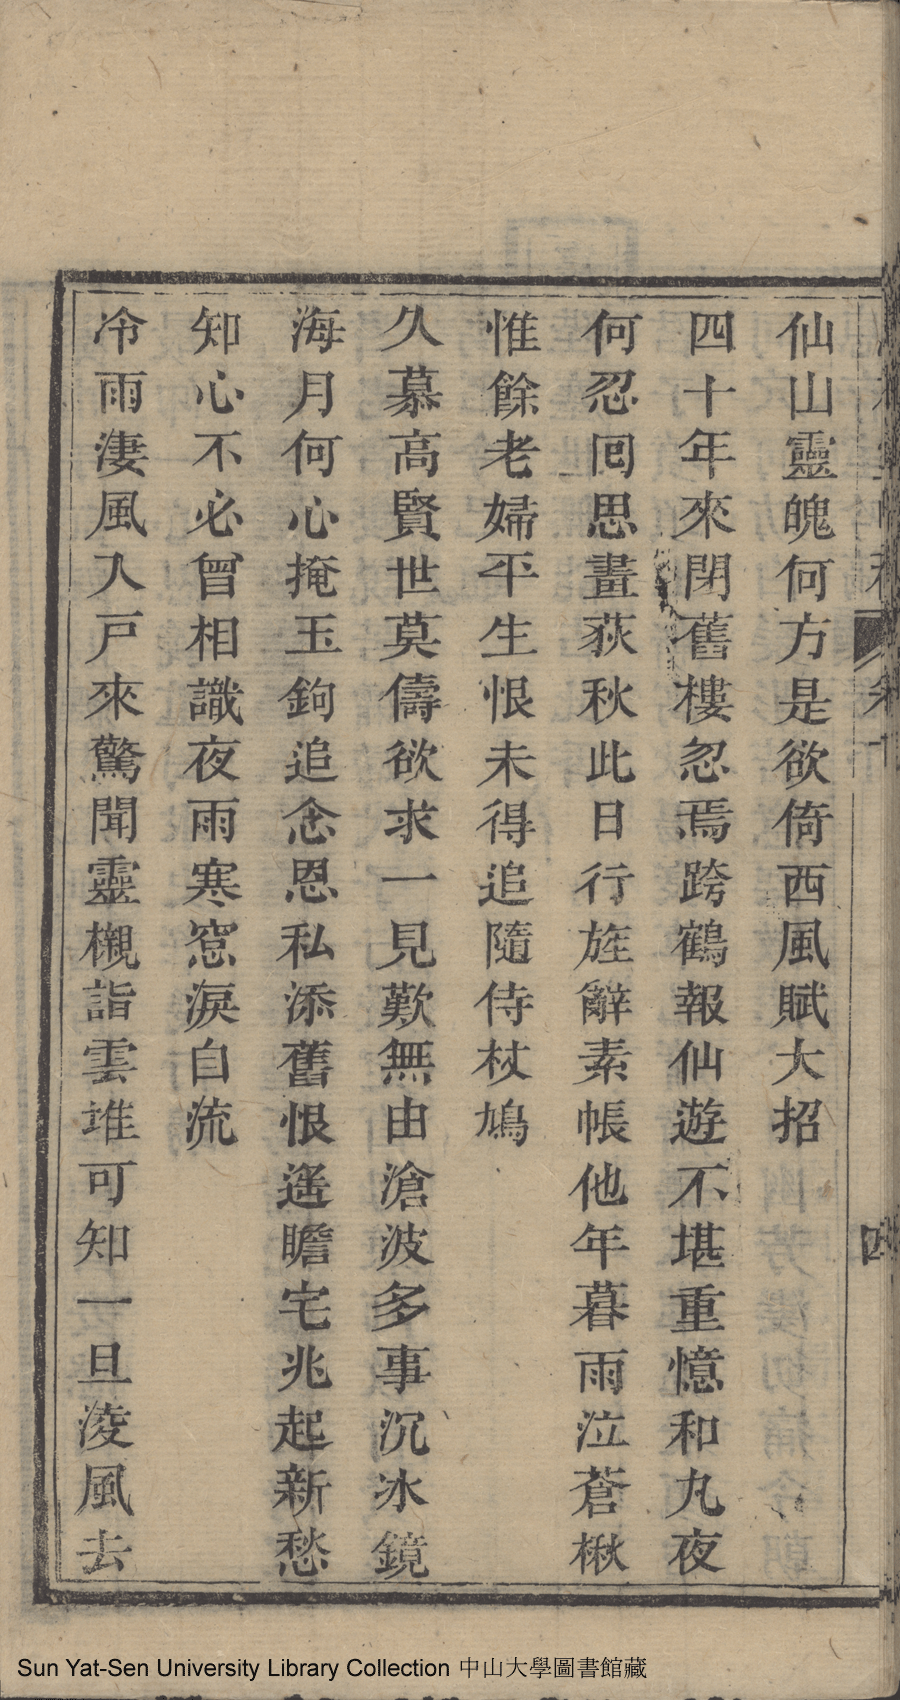 仙山靈魄何方是欲倚西風賦大招
四十年來閉舊樓忍焉跨鶴報仙遊不堪重憶和丸夜
何忍囘思畫荻秋此日行旌辭素帳他年暮雨泣蒼楸
惟餘老婦平生恨未得追隨侍杖鳩
久慕高賢世莫儔欲求一見歎無由滄波多事沉冰鏡
海月何心掩玉鉤追念恩私添舊恨遙瞻宅兆起新愁
知心不必曾相識夜雨寒窓淚自流
冷雨淒風入戸來驚聞靈櫬詣雲堆可知一旦淩風去
四
Sun Yat-Sen University Library Collection 中山大學圖書館藏